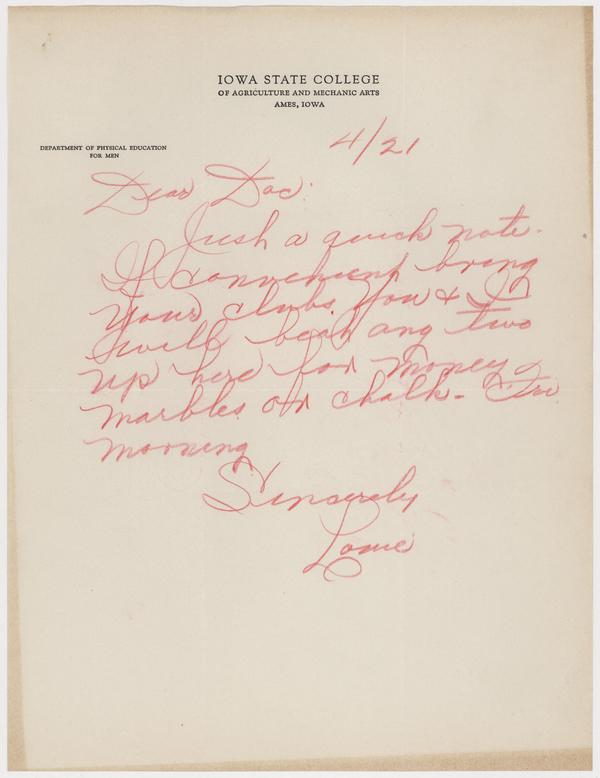 IOWA STATE COLLEGE
OF AGRICULTURE AND MECHANIC ARTS
AMES, IOWA
DEPARTMENT OF PHYSICAL EDUCATION
FOR MEN
4/21
Dear Doc:
Just a quick note.
If convenient bring
your clubs. You & I
will beat any two
up here for money
marbles or chalk - Fri
morning
Sincerely